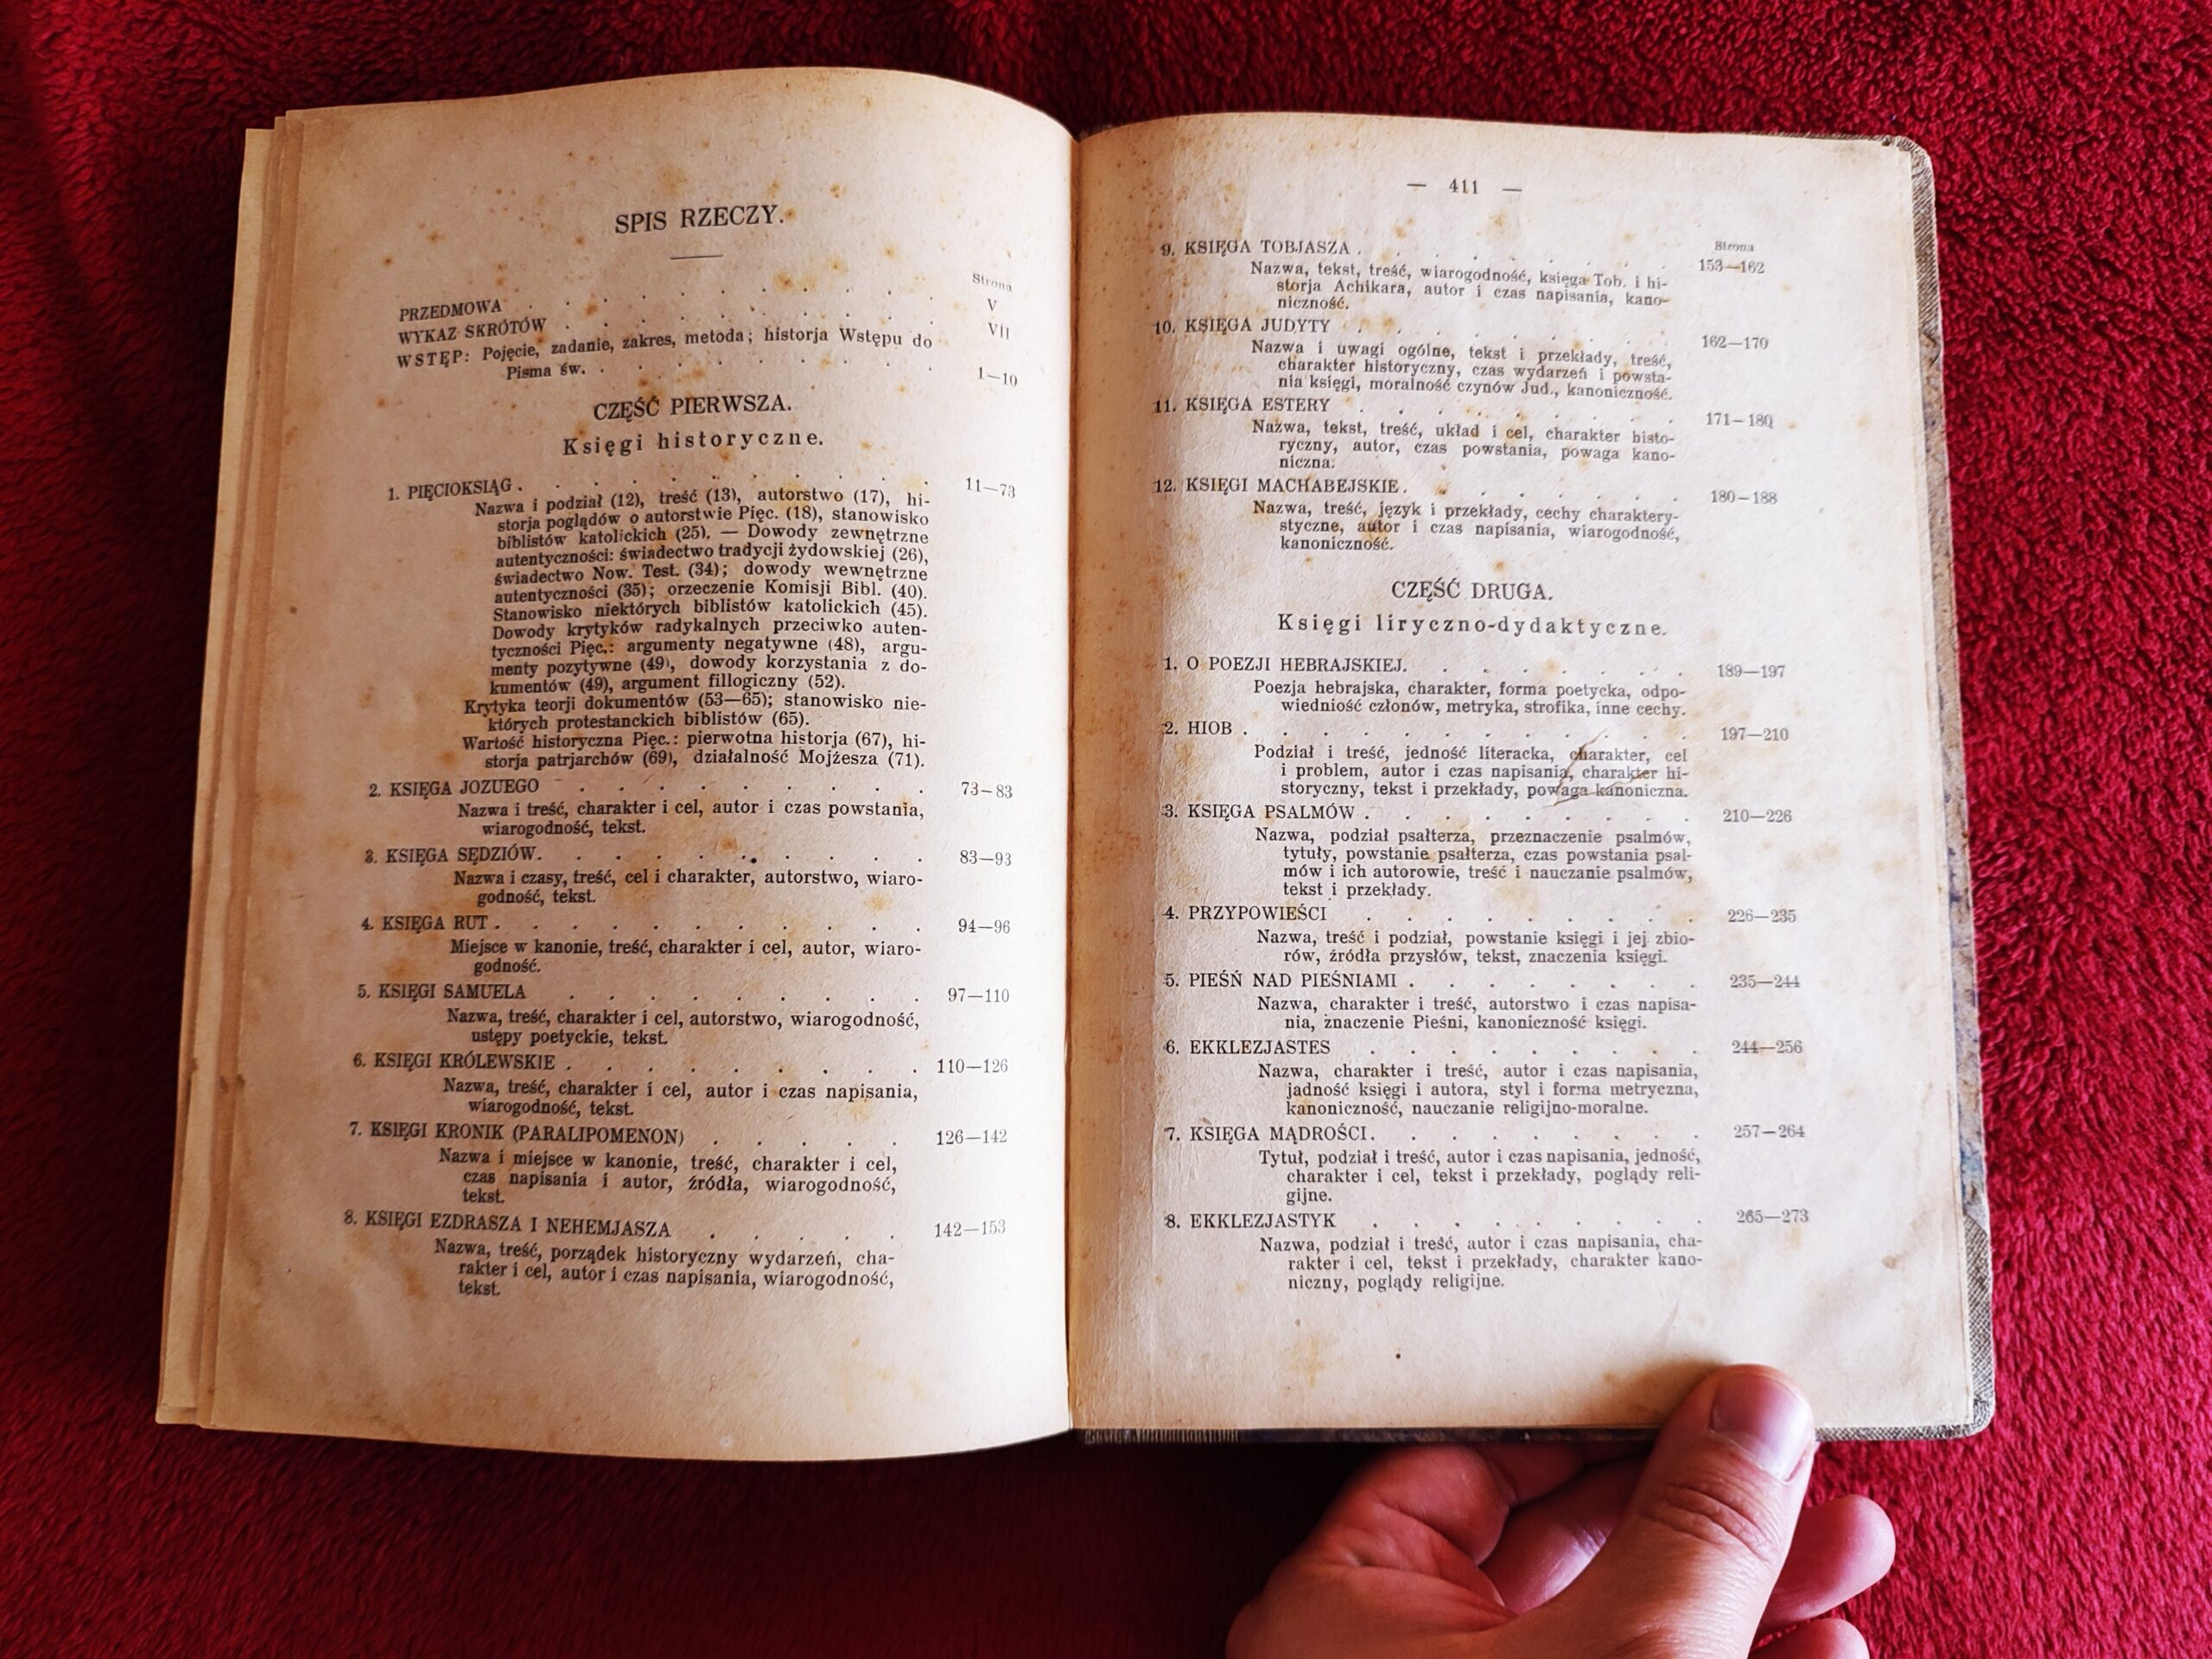 SPIS RZECZY.
Strona
PRZEDMOWA . . . . . . . . . V
WYKAZ SKRÓTÓW . . . . . . . . VII
WSTĘP: Pojęcie, zadanie, zakres, metoda; historja Wstępu do
Pisma św. . . . . . . . 1—10
CZĘŚĆ PIERWSZA.
Księgi historyczne.
1. PIĘCIOKSIĄG . . . . . . . . . 11—73
Nazwa i podział (12), treść (13), autorstwo (17), hi-
storja poglądów o autorstwie Pięc. (18), stanowisko
biblistów katolickich (25). — Dowody zewnętrzne
autentyczności: świadectwo tradycji żydowskiej (26),
świadectwo Now. Test. (34); dowody wewnętrzne
autentyczności (35); orzeczenie Komisji Bibl. (40).
Stanowisko niektórych biblistów katolickich (45).
Dowody krytyków radykalnych przeciwko auten-
tyczności Pięc.: argumenty negatywne (48), argu-
menty pozytywne (49), dowody korzystania z do-
kumentów (49), argument fillogiczny (52).
Krytyka teorji dokumentów (53—65); stanowisko nie-
których protestanckich biblistów (65).
Wartość historyczna Pięc.: pierwotna historja (67), hi-
storja patrjarchów (69), działalność Mojżesza (71).
2. KSIĘGA JOZUEGO . . . . . . . . 73—83
Nazwa i treść, charakter i cel, autor i czas powstania,
wiarogodność, tekst.
3. KSIĘGA SĘDZIÓW. . . . . . . . . 83—93
Nazwa i czasy, treść, cel i charakter, autorstwo, wiaro-
godność, tekst.
4. KSIĘGA RUT . . . . . . . . . 94—96
Miejsce w kanonie, treść, charakter i cel, autor, wiaro-
godność.
5. KSIĘGI SAMUELA . . . . . . . . 97—110
Nazwa, treść, charakter i cel, autorstwo, wiarogodność,
ustępy poetyckie, tekst.
6. KSIĘGI KRÓLEWSKIE . . . . . . . . 110—126
Nazwa, treść, charakter i cel, autor i czas napisania,
wiarogodność, tekst.
7. KSIĘGI KRONIK (PARALIPOMENON) . . . . . 126—142
Nazwa i miejsce w kanonie, treść, charakter i cel,
czas napisania i autor, źródła, wiarogodność,
tekst.
8. KSIĘGI EZDRASZA I NEHEMJASZA . . . . . 142—153
Nazwa, treść, porządek historyczny wydarzeń, cha-
rakter i cel, autor i czas napisania, wiarogodność,
tekst.
— 411 —
Strona
9. KSIĘGA TOBJASZA . . . . . . . . . 153—162
Nazwa, tekst, treść, wiarogodność, księga Tob. i hi-
storja Achikara, autor i czas napisania, kano-
niczność.
10. KSIĘGA JUDYTY . . . . . . . . . 162—170
Nazwa i uwagi ogólne, tekst i przekłady, treść,
charakter historyczny, czas wydarzeń i powsta-
nia księgi, moralność czynów Jud., kanoniczność.
11. KSIĘGA ESTERY . . . . . . . . . 171—180
Nazwa, tekst, treść, układ i cel, charakter histo-
ryczny, autor, czas powstania, powaga kano-
niczna.
12. KSIĘGI MACHABEJSKIE . . . . . . . . 180—188
Nazwa, treść, język i przekłady, cechy charaktery-
styczne, autor i czas napisania, wiarogodność,
kanoniczność.
CZĘŚĆ DRUGA.
Księgi liryczno-dydaktyczne.
1. O POEZJI HEBRAJSKIEJ. . . . . . . . 189—197
Poezja hebrajska, charakter, forma poetycka, odpo-
wiedniość członów, metryka, strofika, inne cechy.
2. HIOB . . . . . . . . . . . . 197—210
Podział i treść, jedność literacka, charakter, cel
i problem, autor i czas napisania, charakter hi-
storyczny, tekst i przekłady, powaga kanoniczna.
3. KSIĘGA PSALMÓW . . . . . . . . . 210—226
Nazwa, podział psałterza, przeznaczenie psalmów,
tytuły, powstanie psałterza, czas powstania psal-
mów i ich autorowie, treść i nauczanie psalmów,
tekst i przekłady.
4. PRZYPOWIEŚCI . . . . . . . . . 226—235
Nazwa, treść i podział, powstanie księgi i jej zbio-
rów, źródła przysłów, tekst, znaczenia księgi.
5. PIEŚŃ NAD PIEŚNIAMI . . . . . . . . 235—244
Nazwa, charakter i treść, autorstwo i czas napisa-
nia, znaczenie Pieśni, kanoniczność księgi.
6. EKKLEZJASTES . . . . . . . . . 244—256
Nazwa, charakter i treść, autor i czas napisania,
jadność księgi i autora, styl i forma metryczna,
kanoniczność, nauczanie religijno-moralne.
7. KSIĘGA MĄDROŚCI. . . . . . . . . 257—264
Tytuł, podział i treść, autor i czas napisania, jedność,
charakter i cel, tekst i przekłady, poglądy reli-
gijne.
8. EKKLEZJASTYK . . . . . . . . . 265—273
Nazwa, podział i treść, autor i czas napisania, cha-
rakter i cel, tekst i przekłady, charakter kano-
niczny, poglądy religijne.